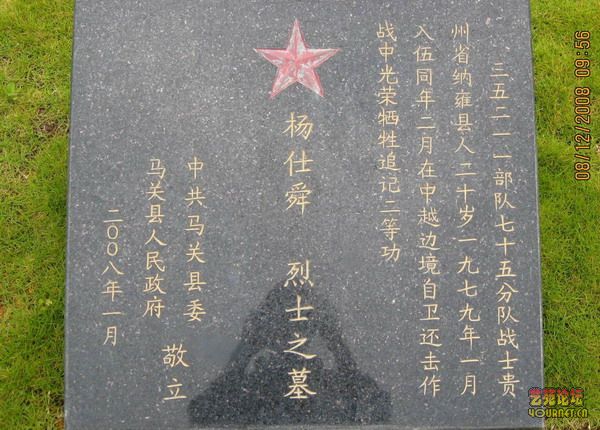 三五二一一部队七十五分队战士贵
州省纳雍县人二十岁一九七九年一月
入伍同年二月在中越边境自卫还击作
战中光荣牺牲追记二等功
杨仕舜 烈士之墓
中共马关县委
马关县人民政府
敬立
二〇〇八年一月
08/12/2008 09:56
艺苑论坛
YOURNET.CN